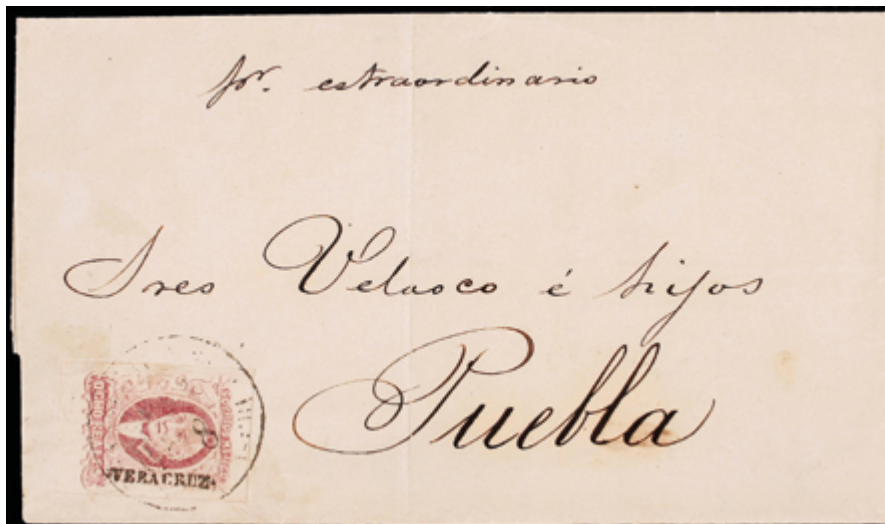 pr. estraordinario
Sres Velasco é hijos
Puebla
VERACRUZ